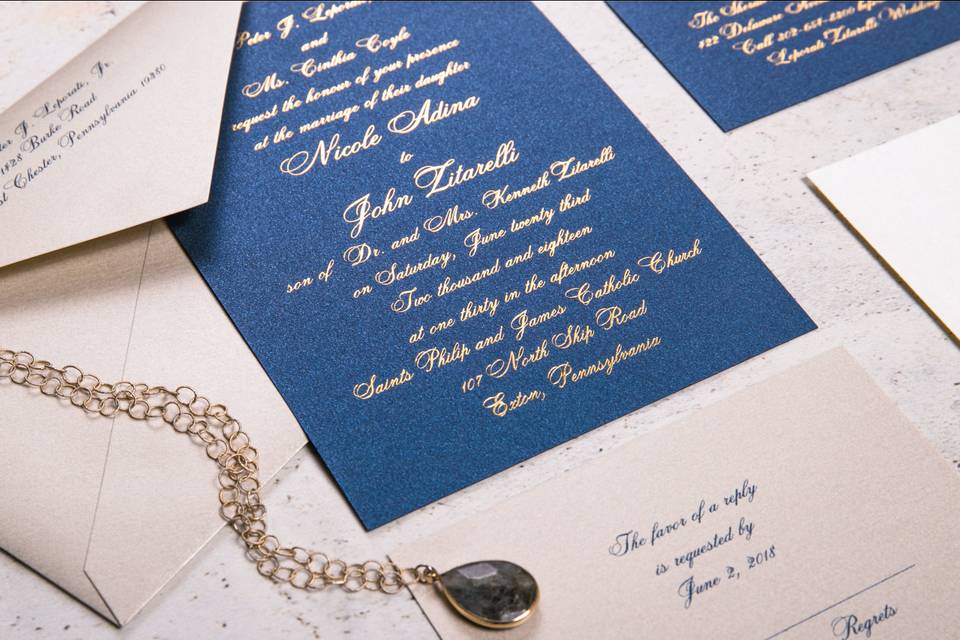 Peter J. Leporati,
and
Ms. Cinthia Coyle
request the honour of your presence
at the marriage of their daughter
Nicole Adina
to
John Zitarelli
son of Dr. and Mrs. Kenneth Zitarelli
on Saturday, June twenty third
Two thousand and eighteen
at one thirty in the afternoon
Saints Philip and James Catholic Church
107 North Ship Road
Exton, Pennsylvania
J. Leporati, Jr.
1428 Burke Road
Chester, Pennsylvania 19380
The
Delaware
Call 302-654-2200
Leporati Zitarelli Wedding
The favor of a reply
is requested by
June 2, 2018
Regrets